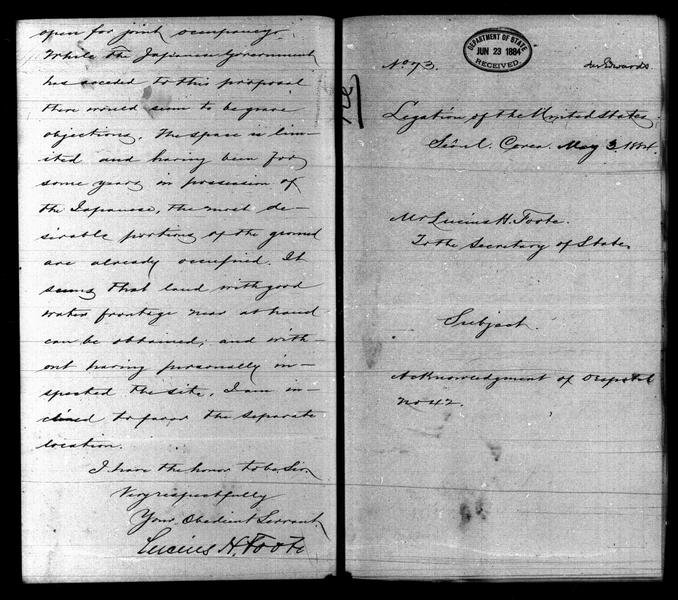 open for joint occupancy.
While the Japanese Government
has acceded to this proposal
there would seem to be grave
objections. The space is lim-
ited and having been for
some years in possession of
the Japanese, the most de-
sirable portions of the ground
are already occupied. It
seems that land with good
water frontage near at hand
can be obtained; and with-
out having personally in-
spected the site, I am in-
clined to favor the separate
location.
I have the honor to be, Sir,
Very respectfully
Your Obedient Servant,
Lucius H. Foote
DEPARTMENT OF STATE
JUN 23 1884
RECEIVED.
No 73.
Legation of the United States,
Séoul, Corea. May 3. 1884.
Mr Lucius H. Foote.
To the Secretary of State.
Subject.
Acknowledgment of Dispatch
No 42.